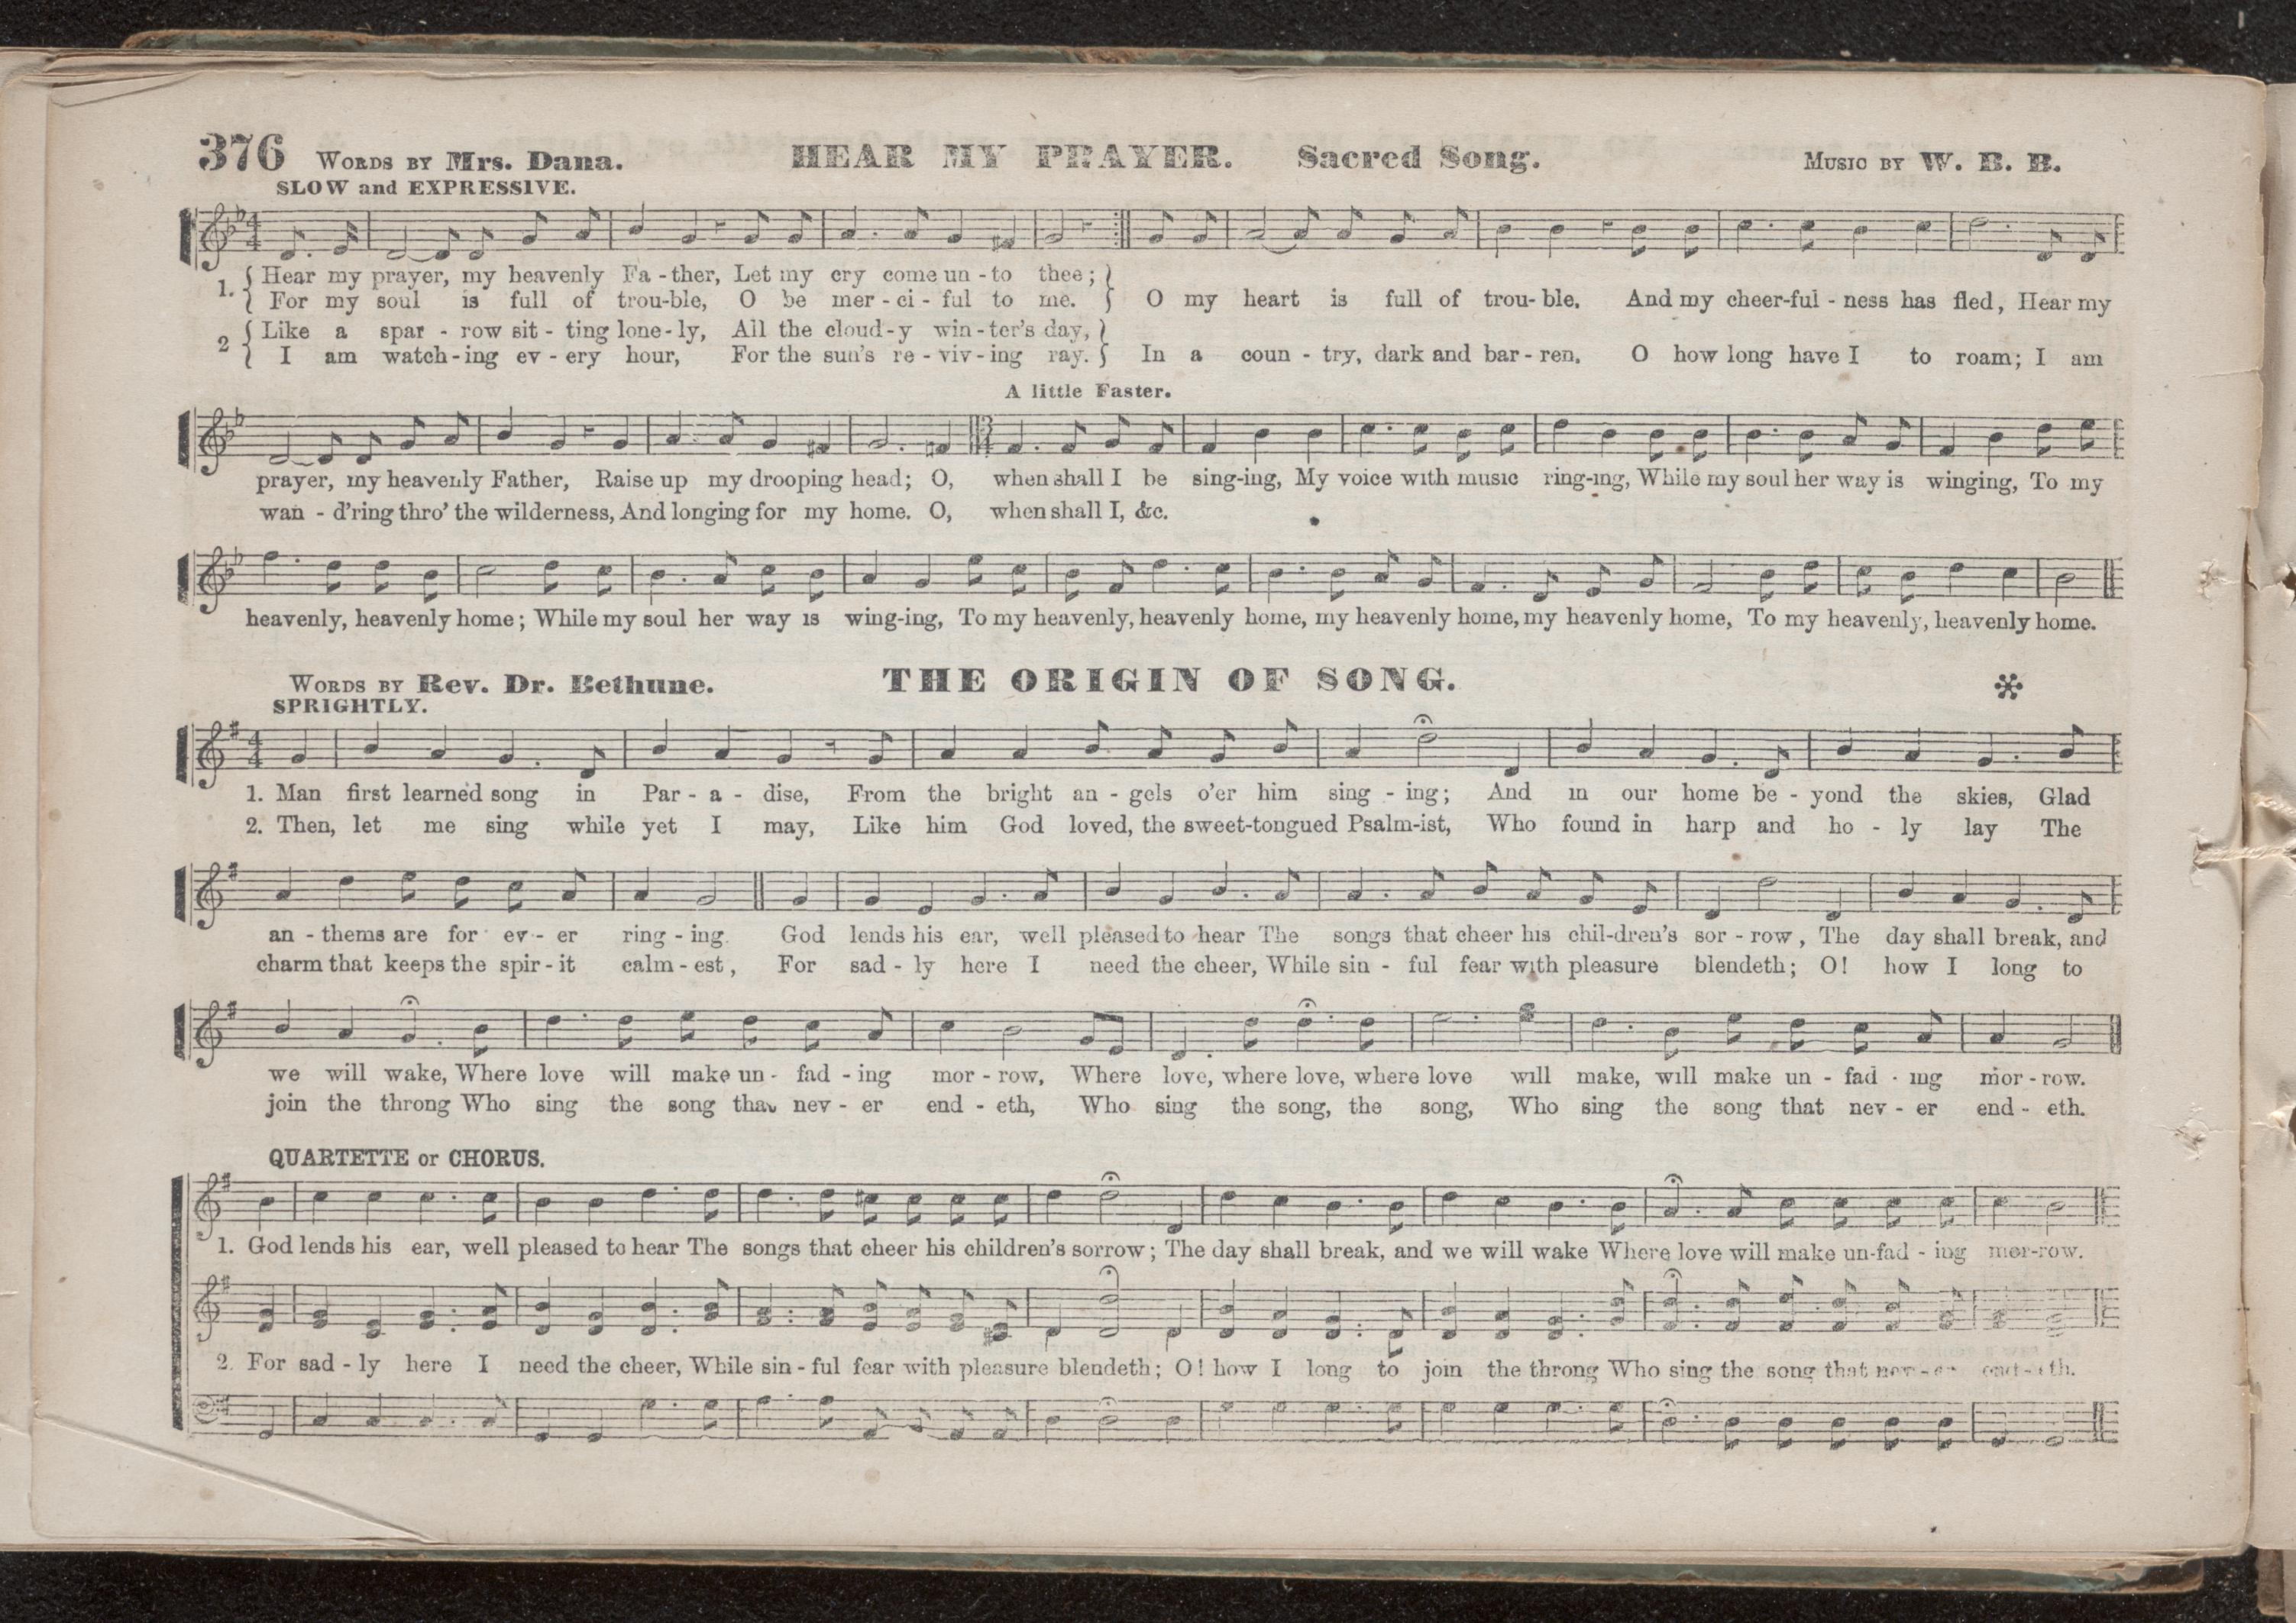 376 WORDS BY Mrs. Dana. HEAR MY PRAYER. Sacred Song. MUSIC BY W. B. B.
SLOW and EXPRESSIVE.
1. { Hear my prayer, my heavenly Fa - ther, Let my cry come un - to thee; }
{ For my soul is full of trou-ble, O be mer - ci - ful to me. } O my heart is full of trou- ble. And my cheer-ful - ness has fled, Hear my
2 { Like a spar - row sit - ting lone - ly, All the cloud - y win - ter's day, }
{ I am watch - ing ev - ery hour, For the sun's re - viv - ing ray. } In a coun - try, dark and bar - ren. O how long have I to roam; I am
A little Faster.
prayer, my heavenly Father, Raise up my drooping head; O, when shall I be sing-ing, My voice with music ring-ing, While my soul her way is winging, To my
wan - d'ring thro' the wilderness, And longing for my home. O, when shall I, &c.
heavenly, heavenly home; While my soul her way is wing-ing, To my heavenly, heavenly home, my heavenly home, my heavenly home, To my heavenly, heavenly home.
WORDS BY Rev. Dr. Bethune. THE ORIGIN OF SONG. *
SPRIGHTLY.
1. Man first learned song in Par - a - dise, From the bright an - gels o'er him sing - ing; And in our home be - yond the skies, Glad
2. Then, let me sing while yet I may, Like him God loved, the sweet-tongued Psalm-ist, Who found in harp and ho - ly lay The
an - thems are for ev - er ring - ing. God lends his ear, well pleased to hear The songs that cheer his chil-dren's sor - row, The day shall break, and
charm that keeps the spir - it calm - est, For sad - ly here I need the cheer, While sin - ful fear with pleasure blendeth; O! how I long to
we will wake, Where love will make un - fad - ing mor - row, Where love, where love, where love will make, will make un - fad - ing mor - row.
join the throng Who sing the song that nev - er end - eth, Who sing the song, the song, Who sing the song that nev - er end - eth.
QUARTETTE or CHORUS.
1. God lends his ear, well pleased to hear The songs that cheer his children's sorrow; The day shall break, and we will wake Where love will make un-fad - ing mor-row.
2. For sad - ly here I need the cheer, While sin - ful fear with pleasure blendeth; O! how I long to join the throng Who sing the song that nev - er end - eth.